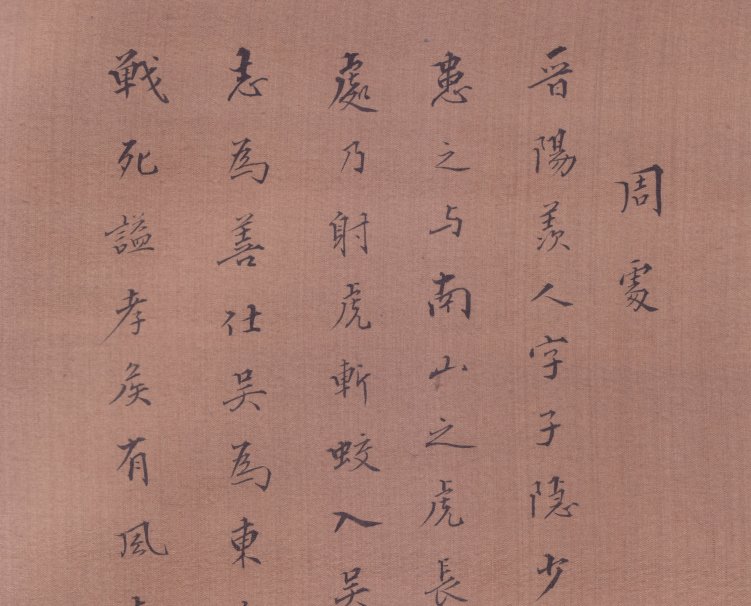 周處
晋陽羨人字子隐少
患之与南山之虎長
處乃射虎斬蛟入吴
志為善仕吴為東
戦死謚孝侯有風